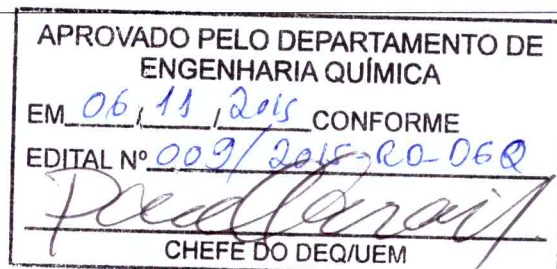 APROVADO PELO DEPARTAMENTO DE
ENGENHARIA QUÍMICA
EM 06, 11, 2015 CONFORME
EDITAL Nº 009/2015-RO-DEQ
CHEFE DO DEQ/UEM